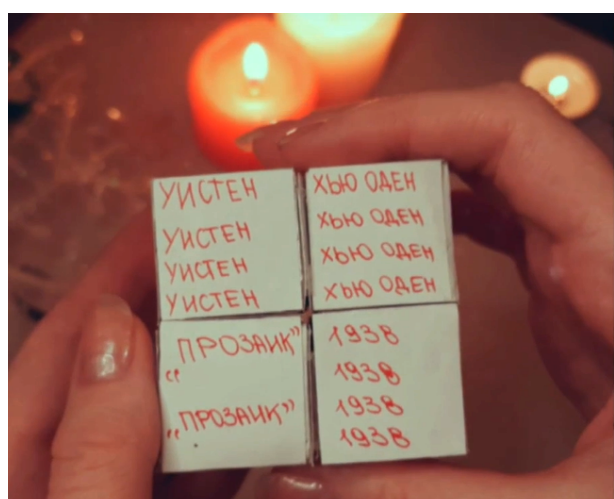 УИСТЕН
УИСТЕН
УИСТЕН
УИСТЕН
ХЬЮ ОДЕН
ХЬЮ ОДЕН
ХЬЮ ОДЕН
ХЬЮ ОДЕН
„ПРОЗАИК”
„ПРОЗАИК”
1938
1938
1938
1938